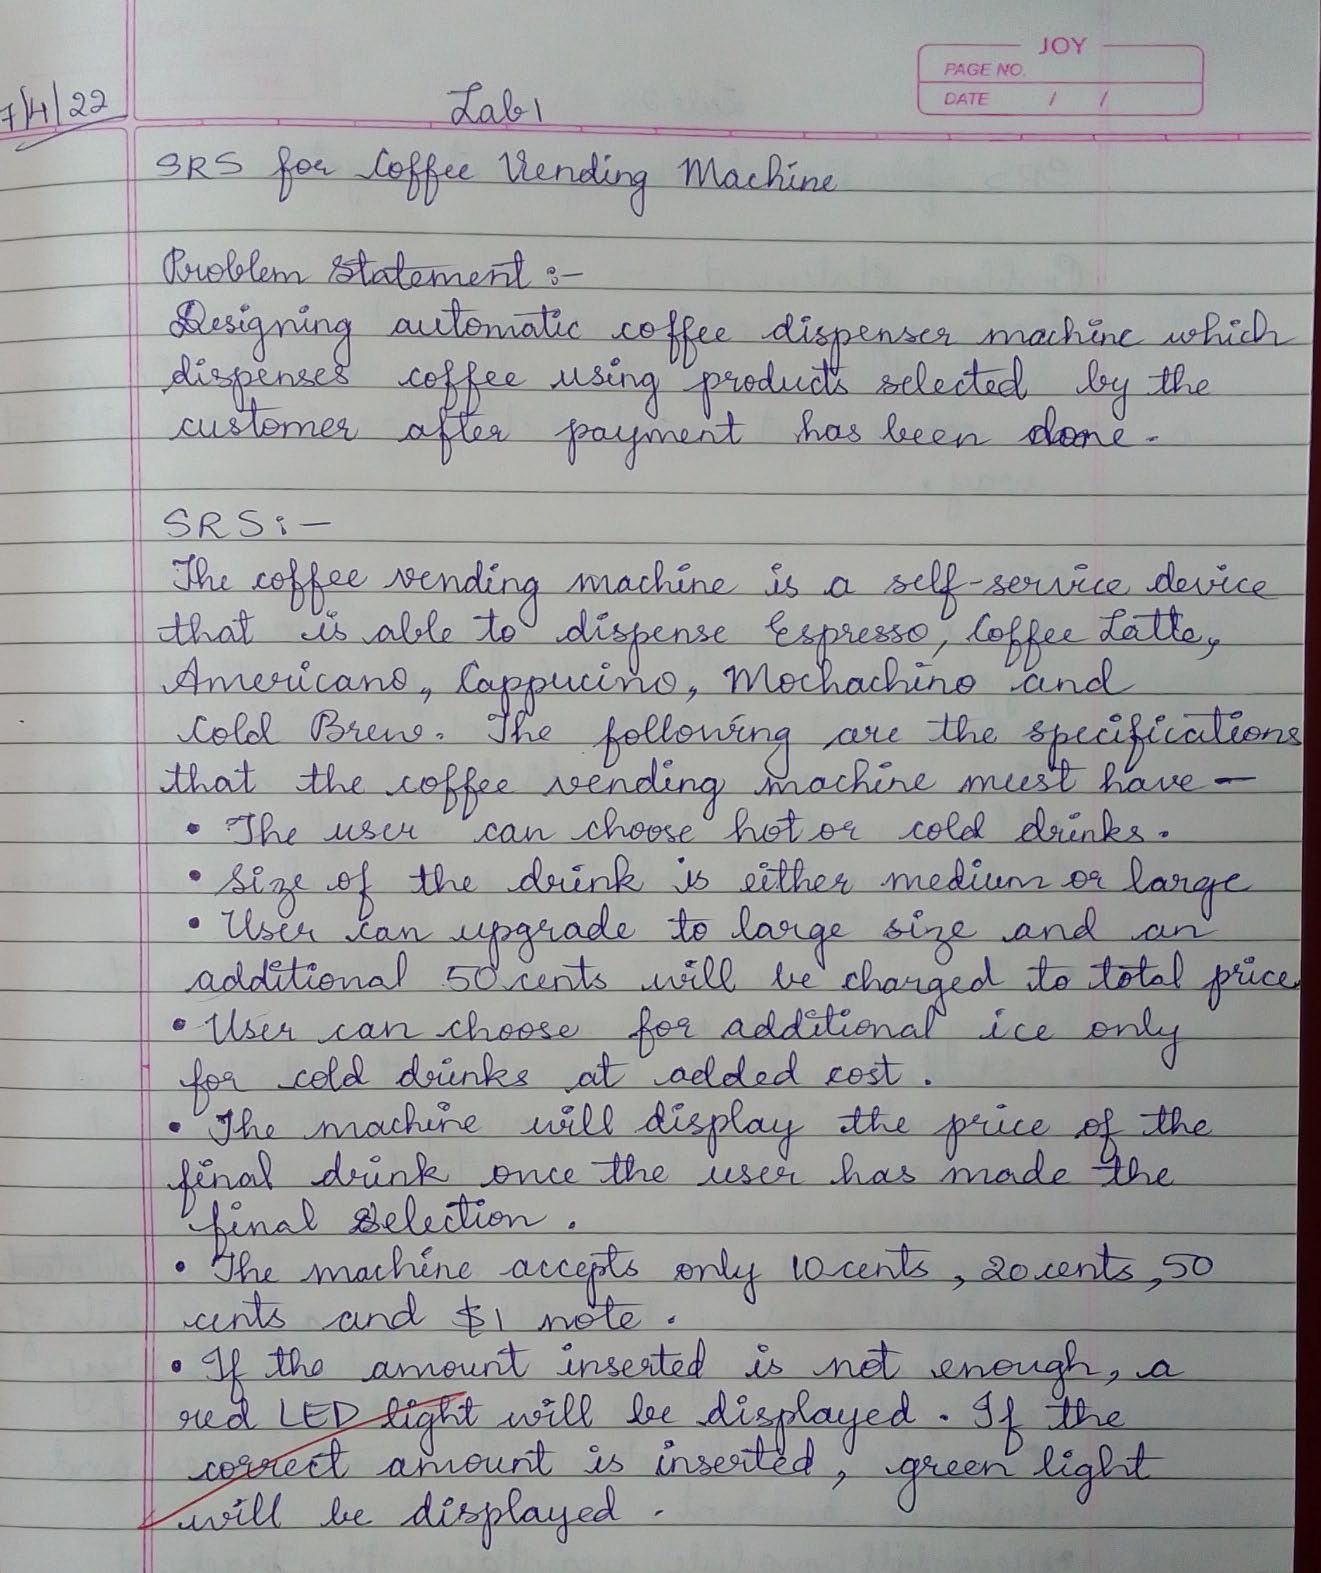 JOY
PAGE NO.
DATE / /
7/4/22
Lab 1
SRS for Coffee Vending Machine
Problem Statement :-
Designing automatic coffee dispenser machine which
dispenses coffee using products selected by the
customer after payment has been done.
SRS :-
The coffee vending machine is a self-service device
that is able to dispense Espresso, Coffee Latte,
Americano, Cappucino, Mochachino and
Cold Brew. The following are the specifications
that the coffee vending machine must have -
• The user can choose hot or cold drinks.
• Size of the drink is either medium or large
• User can upgrade to large size and an
additional 50 cents will be charged to total price.
• User can choose for additional ice only
for cold drinks at added cost.
• The machine will display the price of the
final drink once the user has made the
final selection.
• The machine accepts only 10 cents, 20 cents, 50
cents and $1 note.
• If the amount inserted is not enough, a
red LED light will be displayed. If the
correct amount is inserted, green light
will be displayed.